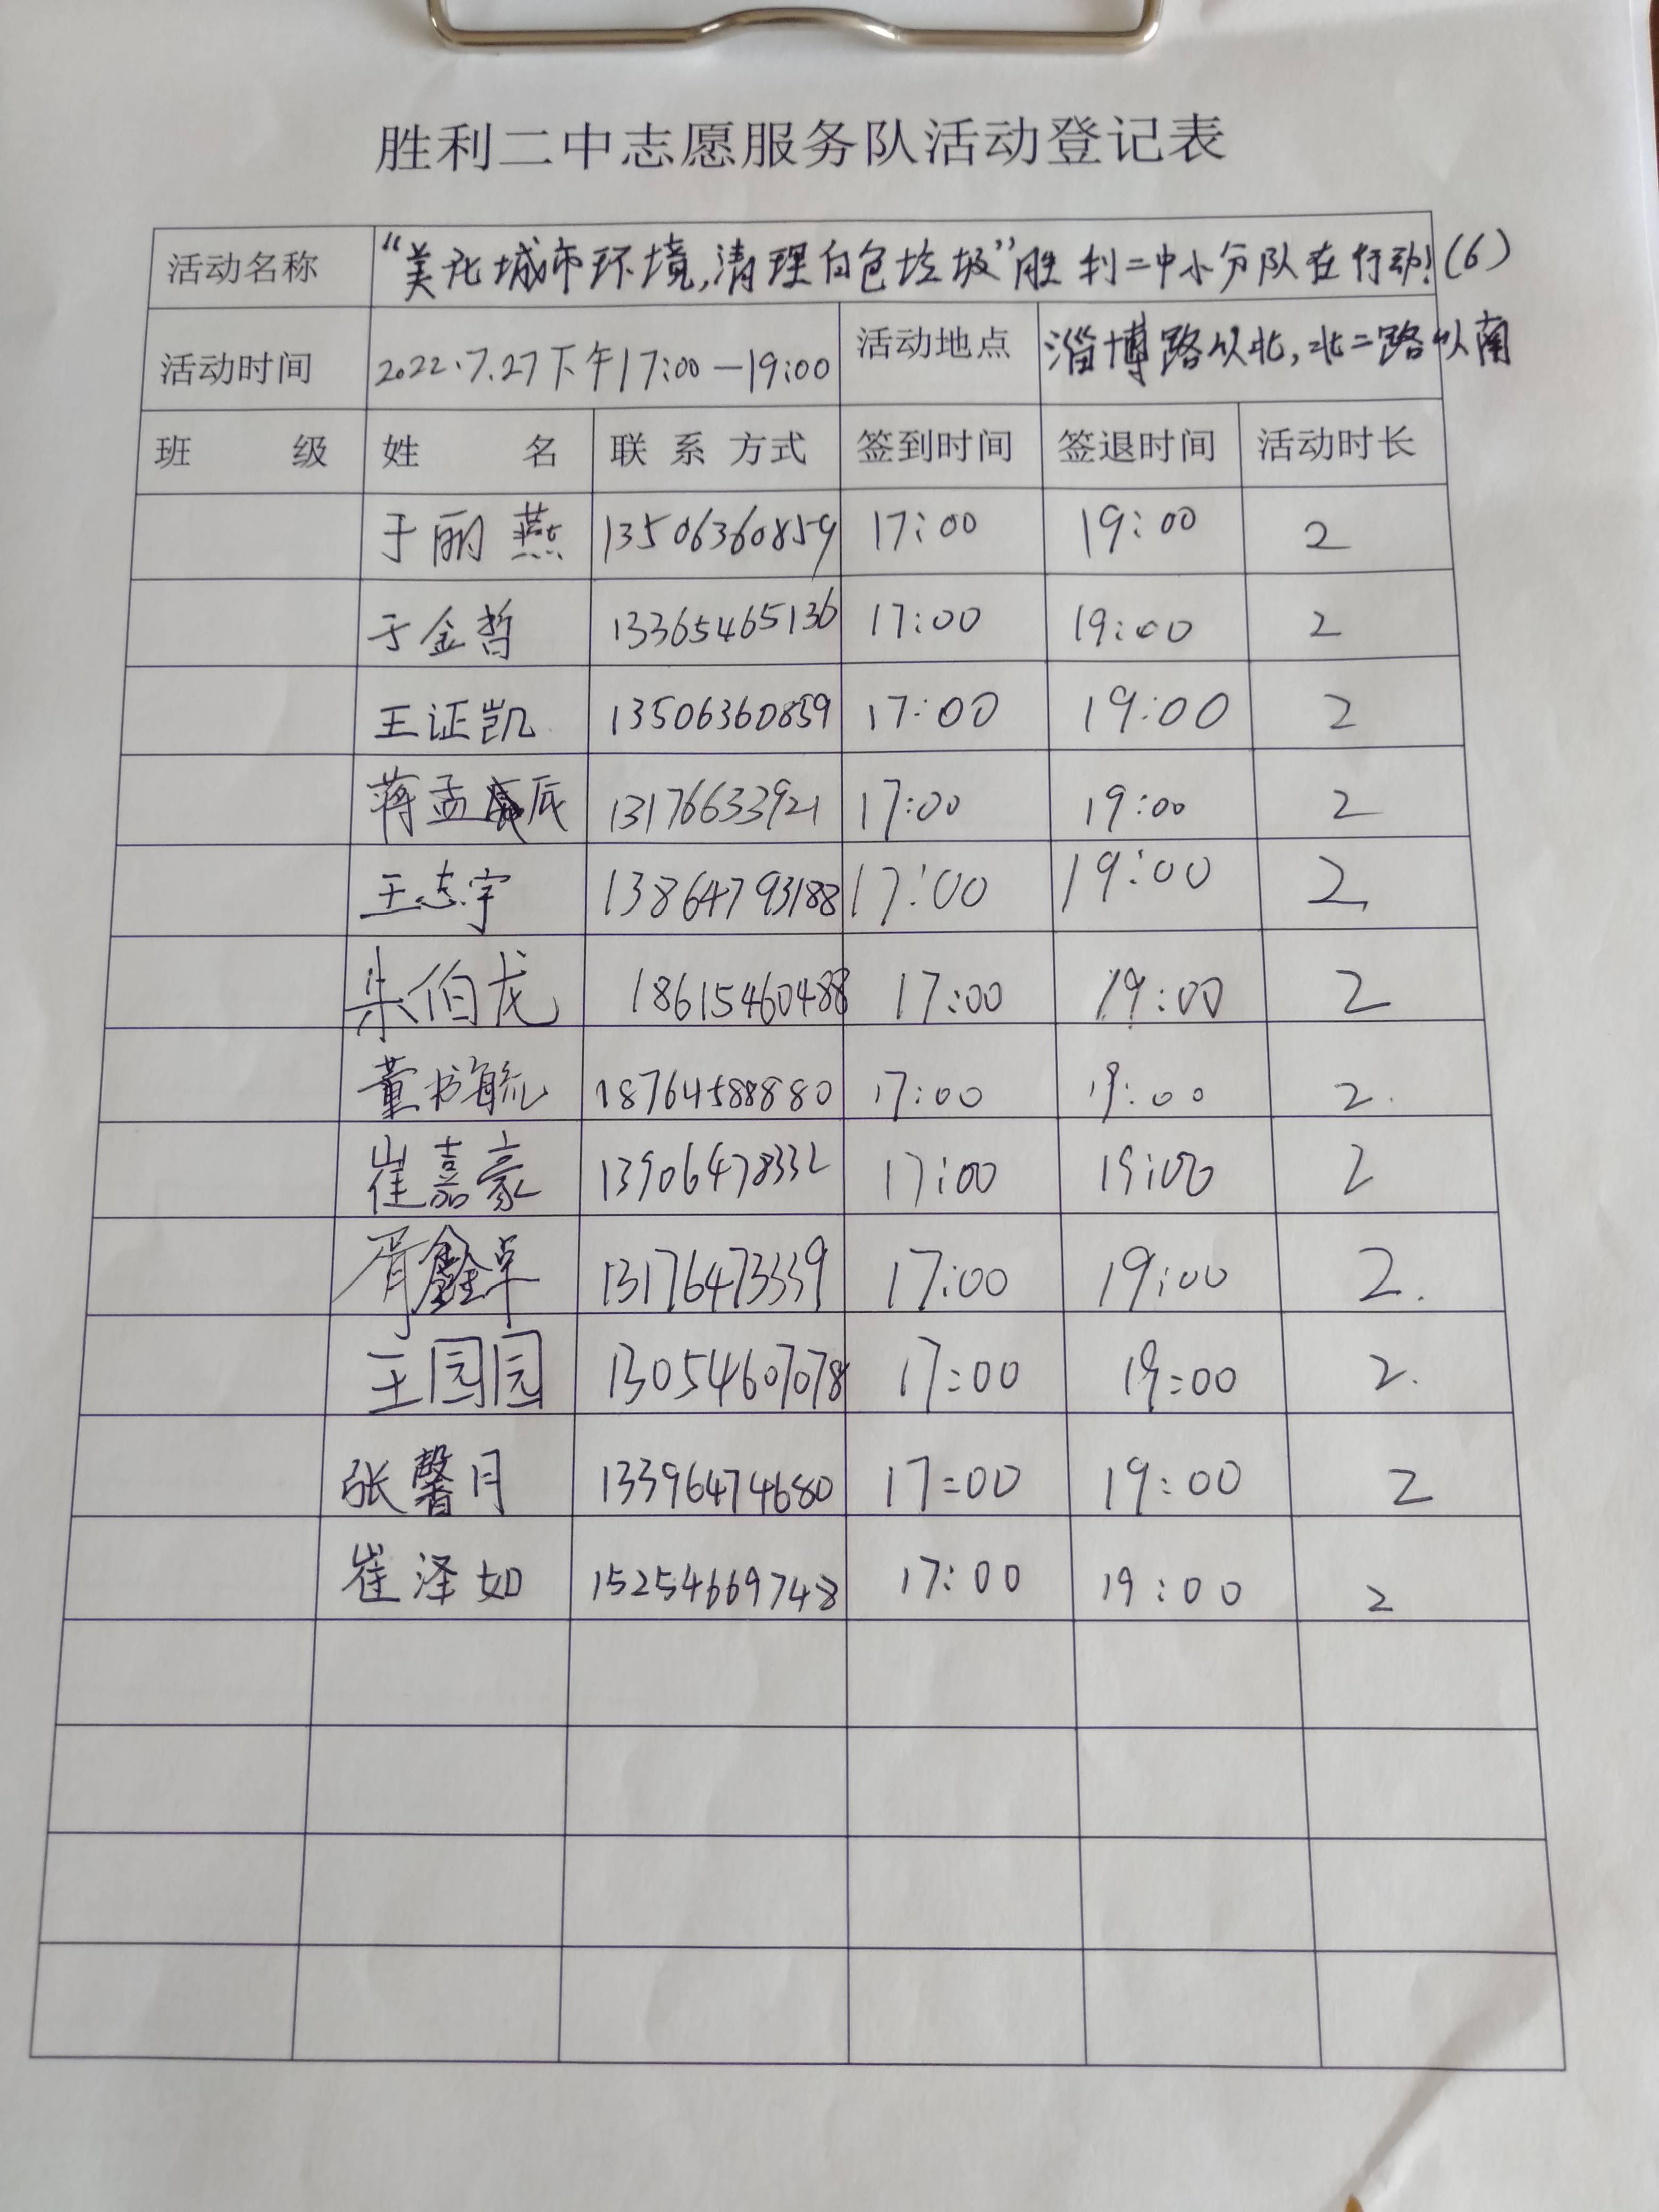 胜利二中志愿服务队活动登记表
活动名称 “美化城市环境,清理白色垃圾”胜利二中小分队在行动!(6)
活动时间 2022.7.27下午17:00—19:00 活动地点 淄博路以北,北二路以南
班 级 姓 名 联 系 方式 签到时间 签退时间 活动时长
于丽燕 13506360859 17:00 19:00 2
于金哲 13365465136 17:00 19:00 2
王证凯 13506360859 17:00 19:00 2
蒋孟辰 13176633921 17:00 19:00 2
王志宇 13864793188 17:00 19:00 2
朱伯龙 18615460488 17:00 19:00 2
董书毓 18764588880 17:00 19:00 2.
崔嘉豪 13906478332 17:00 19:00 2
胥鑫卓 13176473339 17:00 19:00 2.
王园园 13054607078 17:00 19:00 2.
张馨月 13396474680 17:00 19:00 2
崔泽如 15254669748 17:00 19:00 2